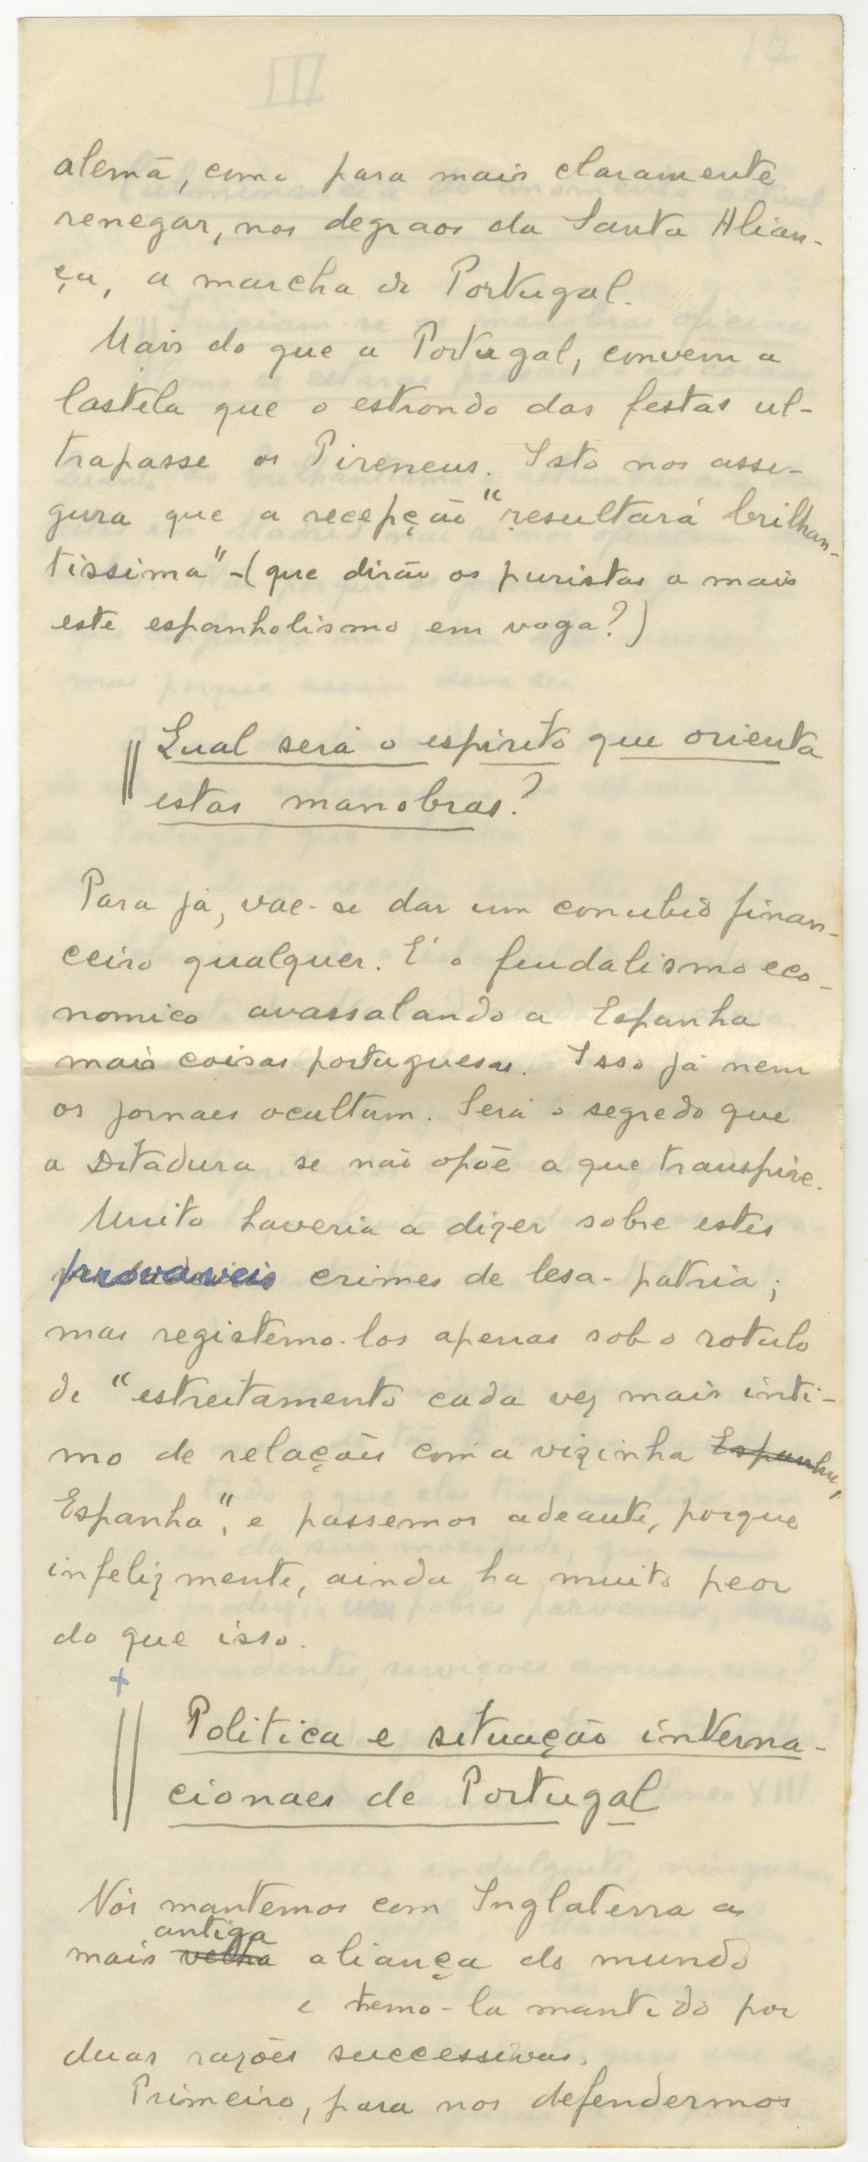 III
alemã, como para mais claramente
renegar, nos degraos da Santa Alian-
ça, a marcha de Portugal.
Mais do que a Portugal, convem a
Castela que o estrondo das festas ul-
trapasse os Pireneus. Isto nos asse-
gura que a recepção "resultará brilhan-
tissima" - (que dirão os puristas a mais
este espanholismo em voga?)
Qual será o espirito que orienta
estas manobras?
Para já, vae-se dar um conubio finan-
ceiro qualquer. E' o feudalismo eco-
nomico avassalando a Espanha
mais coisas portuguesas. Isso já nem
os jornaes ocultam. Será o segredo que
a Ditadura se não opõe a que transpire.
Muito haveria a dizer sobre estes
provaveis crimes de lesa-patria;
mas registemo-los apenas sob o rotulo
de "estreitamento cada vez mais inti-
mo de relações com a vizinha Espanha,
Espanha", e passemos adeante, porque
infelizmente, ainda ha muito peor
do que isso.
+
Politica e situação interna-
cionaes de Portugal
Nós mantemos com Inglaterra a
antiga
mais velha aliança do mundo
e temo-la mantido por
duas razões successivas.
Primeiro, para nos defendermos